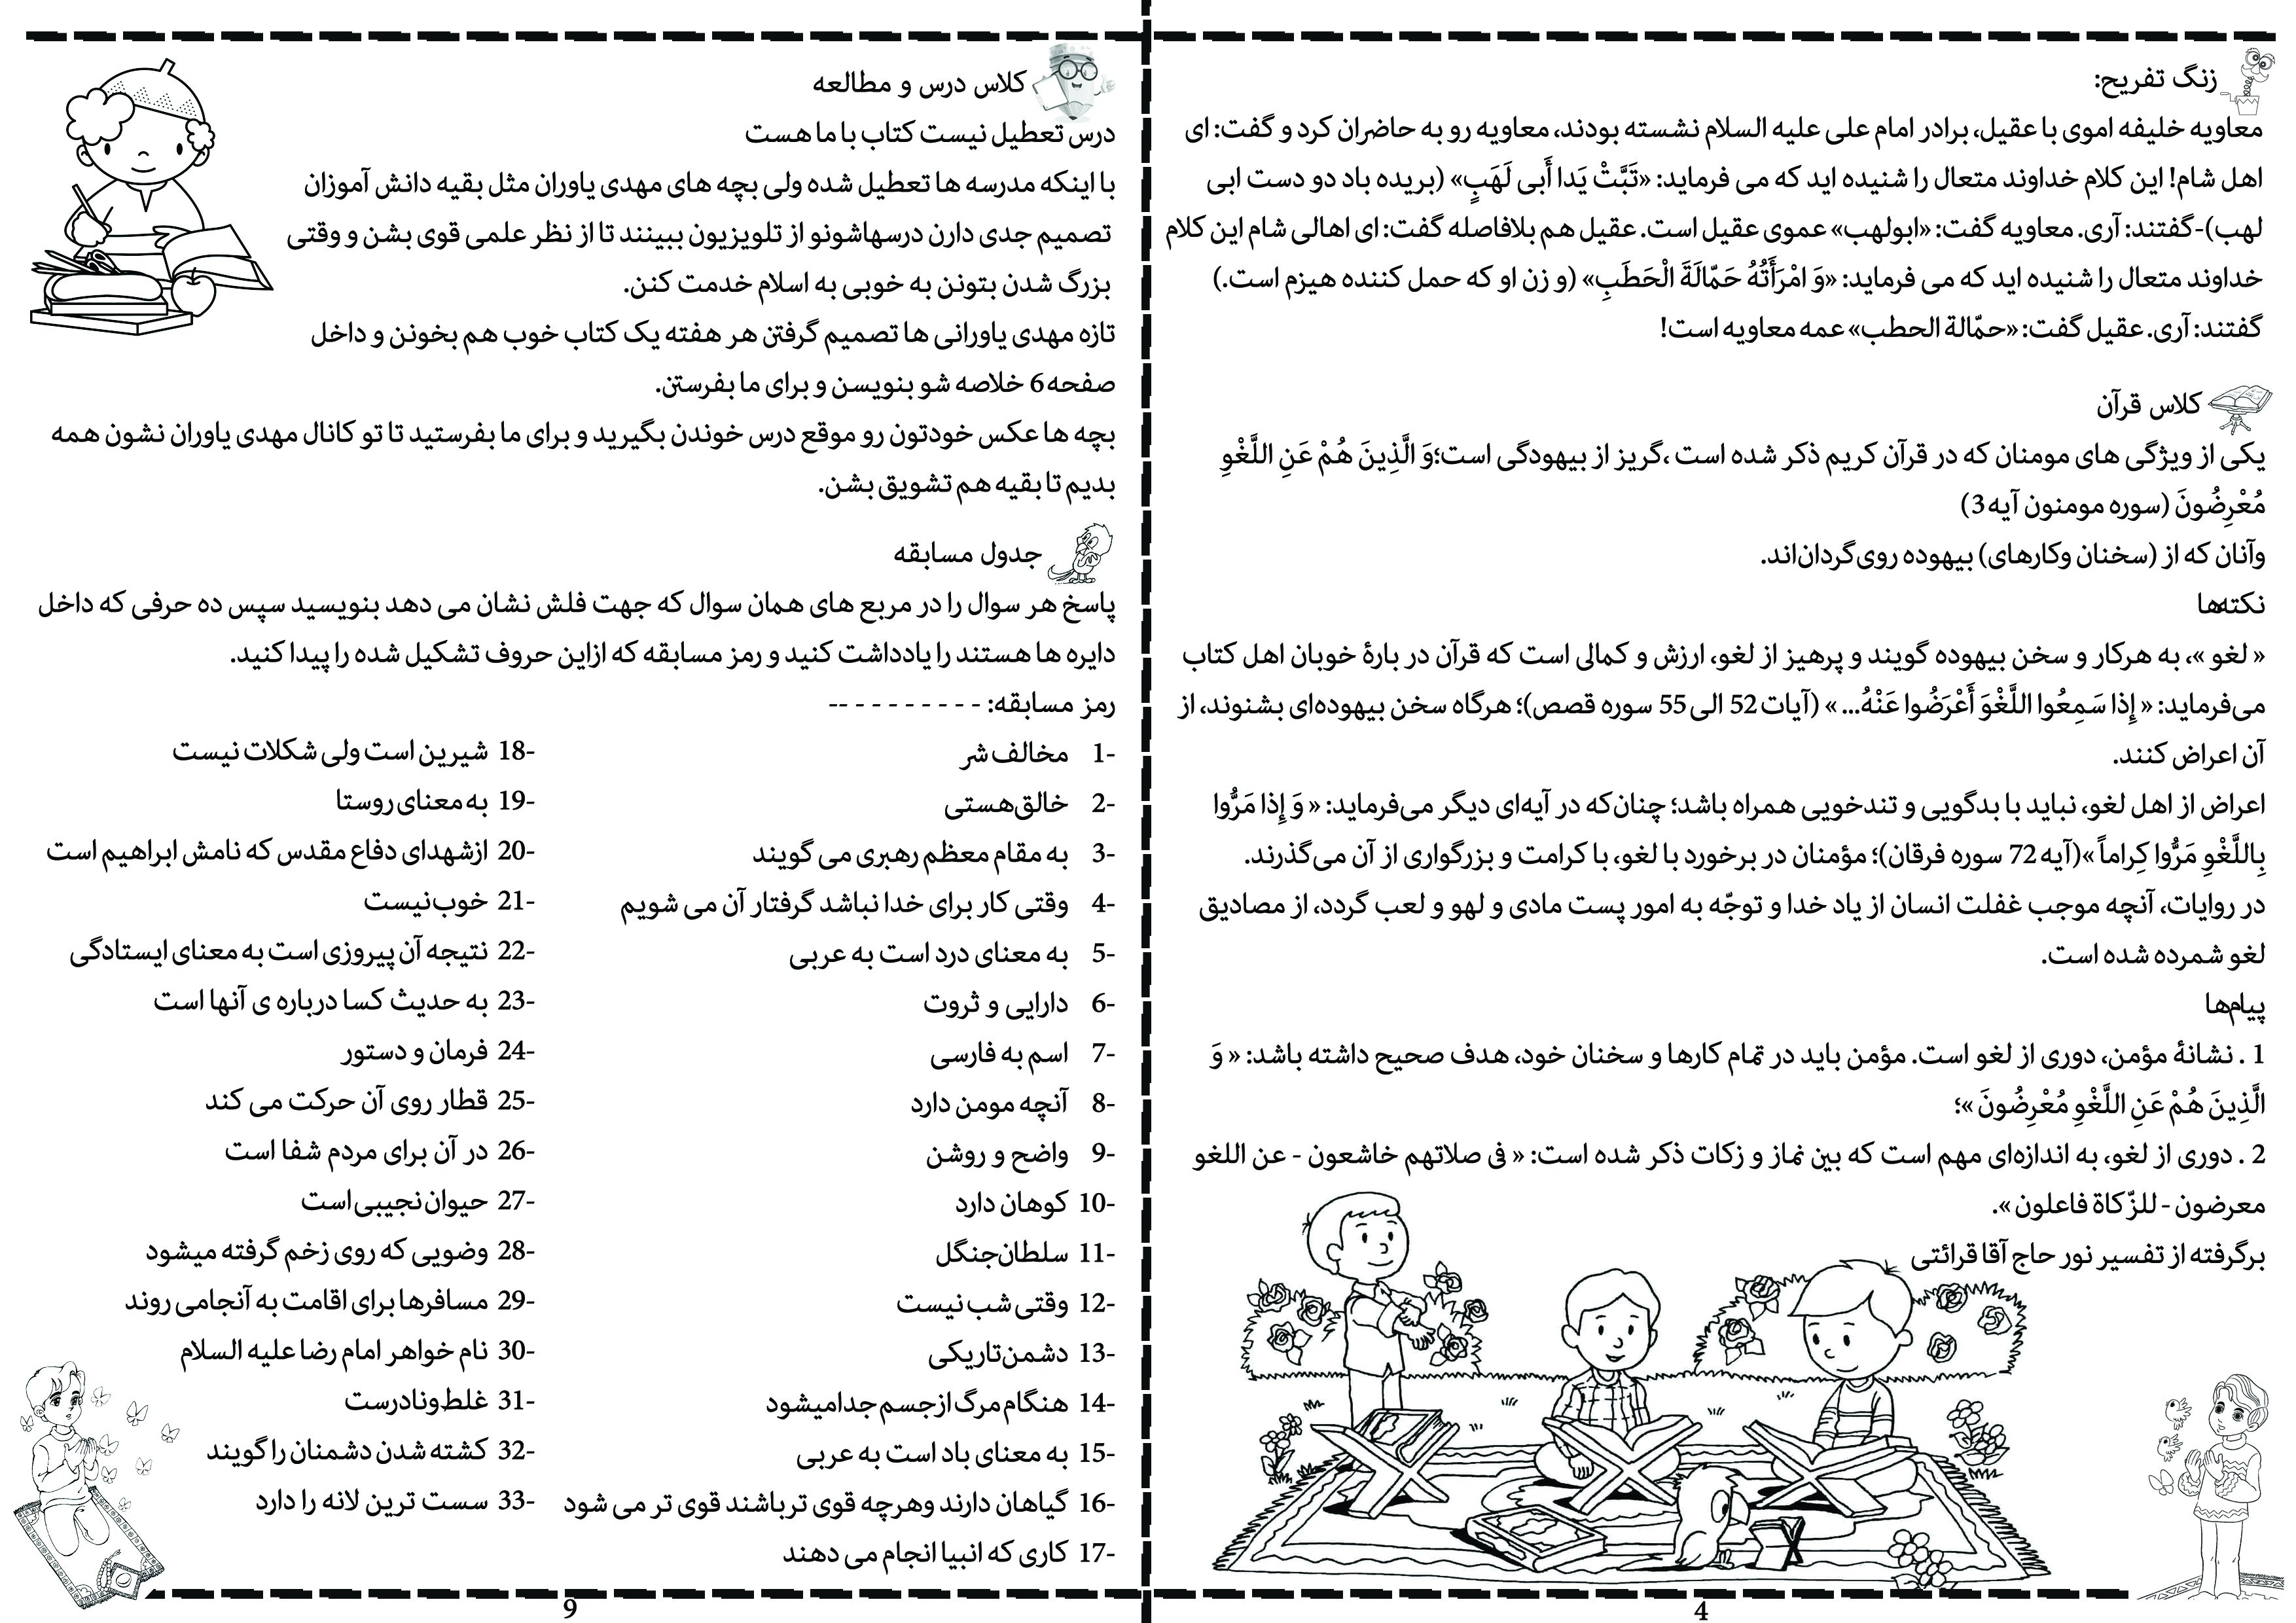 زنگ تفریح:
معاویه خلیفه اموی با عقیل، برادر امام علی علیه السلام نشسته بودند، معاویه رو به حاضران کرد و گفت: ای
اهل شام! این کلام خداوند متعال را شنیده اید که می فرماید: «تَبَّتْ یَدا أَبی لَهَبٍ» (بریده باد دو دست ابی
لهب)-گفتند: آری. معاویه گفت: «ابولهب» عموی عقیل است. عقیل هم بلافاصله گفت: ای اهالی شام این کلام
خداوند متعال را شنیده اید که می فرماید: «وَ امْرَأَتُهُ حَمّالَةَ الْحَطَبِ» (و زن او که حمل کننده هیزم است.)
گفتند: آری. عقیل گفت: «حمّالة الحطب» عمه معاویه است!
کلاس قرآن
یکی از ویژگی های مومنان که در قرآن کریم ذکر شده است ،گریز از بیهودگی است؛وَ الَّذِینَ هُمْ عَنِ اللَّغْوِ
مُعْرِضُونَ (سوره مومنون آیه3)
وآنان که از (سخنان وکارهای) بیهوده روی‌گردان‌اند.
نکته‌ها
« لغو »، به هرکار و سخن بیهوده گویند و پرهیز از لغو، ارزش و کمالی است که قرآن در بارۀ خوبان اهل کتاب
می‌فرماید: « إِذا سَمِعُوا اللَّغْوَ أَعْرَضُوا عَنْهُ... » (آیات 52 الی 55 سوره قصص)؛ هرگاه سخن بیهوده‌ای بشنوند، از
آن اعراض کنند.
اعراض از اهل لغو، نباید با بدگویی و تندخویی همراه باشد؛ چنان‌که در آیه‌ای دیگر می‌فرماید: « وَ إِذا مَرُّوا
بِاللَّغْوِ مَرُّوا کِراماً »(آیه 72 سوره فرقان)؛ مؤمنان در برخورد با لغو، با کرامت و بزرگواری از آن می‌گذرند.
در روایات، آنچه موجب غفلت انسان از یاد خدا و توجّه به امور پست مادی و لهو و لعب گردد، از مصادیق
لغو شمرده شده است.
پیام‌ها
1 . نشانۀ مؤمن، دوری از لغو است. مؤمن باید در تمام کارها و سخنان خود، هدف صحیح داشته باشد: « وَ
الَّذِینَ هُمْ عَنِ اللَّغْوِ مُعْرِضُونَ »؛
2 . دوری از لغو، به اندازه‌ای مهم است که بین نماز و زکات ذکر شده است: « فی صلاتهم خاشعون - عن اللغو
معرضون - للزّکاة فاعلون ».
برگرفته از تفسیر نور حاج آقا قرائتی
4
کلاس درس و مطالعه
درس تعطیل نیست کتاب با ما هست
با اینکه مدرسه ها تعطیل شده ولی بچه های مهدی یاوران مثل بقیه دانش آموزان
تصمیم جدی دارن درسهاشونو از تلویزیون ببینند تا از نظر علمی قوی بشن و وقتی
بزرگ شدن بتونن به خوبی به اسلام خدمت کنن.
تازه مهدی یاورانی ها تصمیم گرفتن هر هفته یک کتاب خوب هم بخونن و داخل
صفحه6 خلاصه شو بنویسن و برای ما بفرستن.
بچه ها عکس خودتون رو موقع درس خوندن بگیرید و برای ما بفرستید تا تو کانال مهدی یاوران نشون همه
بدیم تا بقیه هم تشویق بشن.
جدول مسابقه
پاسخ هر سوال را در مربع های همان سوال که جهت فلش نشان می دهد بنویسید سپس ده حرفی که داخل
دایره ها هستند را یادداشت کنید و رمز مسابقه که ازاین حروف تشکیل شده را پیدا کنید.
رمز مسابقه: - - - - - - - - - --
1- مخالف شر
2- خالق‌هستی
3- به مقام معظم رهبری می گویند
4- وقتی کار برای خدا نباشد گرفتار آن می شویم
5- به معنای درد است به عربی
6- دارایی و ثروت
7- اسم به فارسی
8- آنچه مومن دارد
9- واضح و روشن
10- کوهان دارد
11- سلطان‌جنگل
12- وقتی شب نیست
13- دشمن‌تاریکی
14- هنگام‌مرگ ازجسم جدامیشود
15- به معنای باد است به عربی
16- گیاهان دارند وهرچه قوی ترباشند قوی تر می شود
17- کاری که انبیا انجام می دهند
18- شیرین است ولی شکلات نیست
19- به معنای روستا
20- ازشهدای دفاع مقدس که نامش ابراهیم است
21- خوب‌نیست
22- نتیجه آن پیروزی است به معنای ایستادگی
23- به حدیث کسا درباره ی آنها است
24- فرمان و دستور
25- قطار روی آن حرکت می کند
26- در آن برای مردم شفا است
27- حیوان‌نجیبی‌است
28- وضویی که روی زخم گرفته میشود
29- مسافرها برای اقامت به آنجامی روند
30- نام خواهر امام رضا علیه السلام
31- غلط‌ونادرست
32- کشته شدن دشمنان را گویند
33- سست ترین لانه را دارد
9